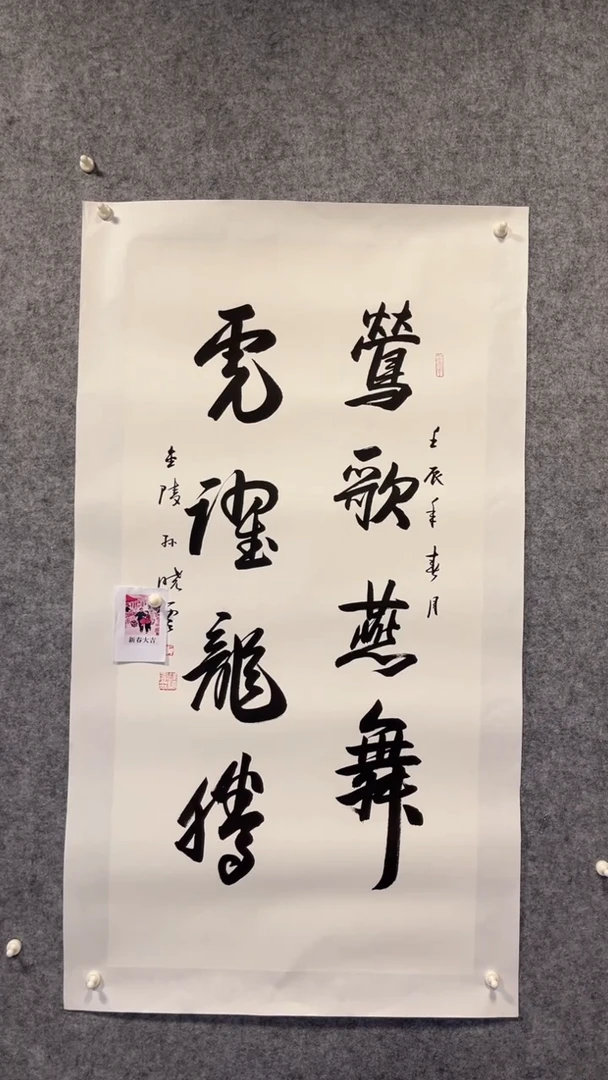 鶯歌燕舞
壬辰年春月
虎躍龍騰
金陵孫曉雲
新春大吉